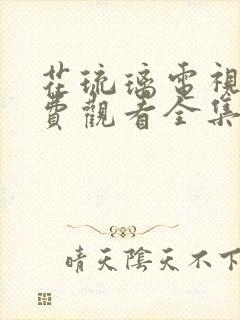 茌琉璃電視
費觀看全集
晴天陰天不下